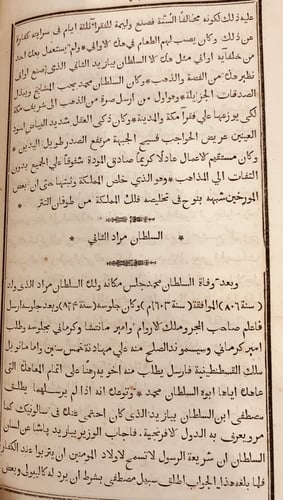 عليه ذلك لكونه مخالفًا السُنَّة فصنع وليمة للفقراء ثلثة ايام في سرايته كفارة
عن ذلك وكان يصب لهم الطعام في هذه الاواني * ولم يستعمل بعده احد
من خلفائه اواني مثل هذه الا السلطان بيازيد الثاني الذي اصنع اواني
نظير هذه من الفضة والذهب * وكان السلطان محمد يحب المشايخ ويبذل
الصدقات الجزيلة * وهو اول من ارسل صرة من الذهب الى شريف مكة
لكي يوزعها على فقراء مكة والمدينة * وكان ذكي العقل شديد البياض اسود
العينين عريض الحواجب فسيح الجبهة مرتفع الصدر طويل اليدين *
وكان مستقيم الاعمال عادلًا كريمًا صادق المودة شفوقًا على الجميع بدون
التفات الى المذاهب * وهو الذي خلص المملكة وثبتها حتى ان بعض
المورخين شبهه بنوح في تخليصه فلك المملكة من طوفان التتر *
* السلطان مراد الثاني *
وبعد وفاة السلطان محمد جلس مكانه ولده السلطان مراد الذي ولد
(سنة ٨٠٦) الموافقة (سنة ١٤٠٣م) وكان جلوسه (سنة ٨٢٤) وبعد جلوسه ارسل
فاعلم صاحب المجر وملك الاروام وامير مانتشا وكرماني بجلوسه وطلب
امير كرماني وسيسموند الصلح منه على مهادنة خمس سنين واما مانويل
ملك القسطنطينية فارسل يطلب منه اخويه رهنًا على اتمام المعاهدة التي
عاهده اياها ابوه السلطان محمد * وتوعده انه اذا لم يرسلهما يطلق
مصطفى ابن السلطان بيازيد الذي كان احتمى عنده في سالونيك كما
مر ويعرف به الدول الافرنجية. فاجاب الوزير بيازيد باشا عن لسان
السلطان ان شريعة الرسول لا تسمح لاولاد المومنين ان يتربوا عند الكفار
فلما بلغه هذا الجواب اطلق سبيل مصطفى بشرط ان يرد له كاليبولي وبعض